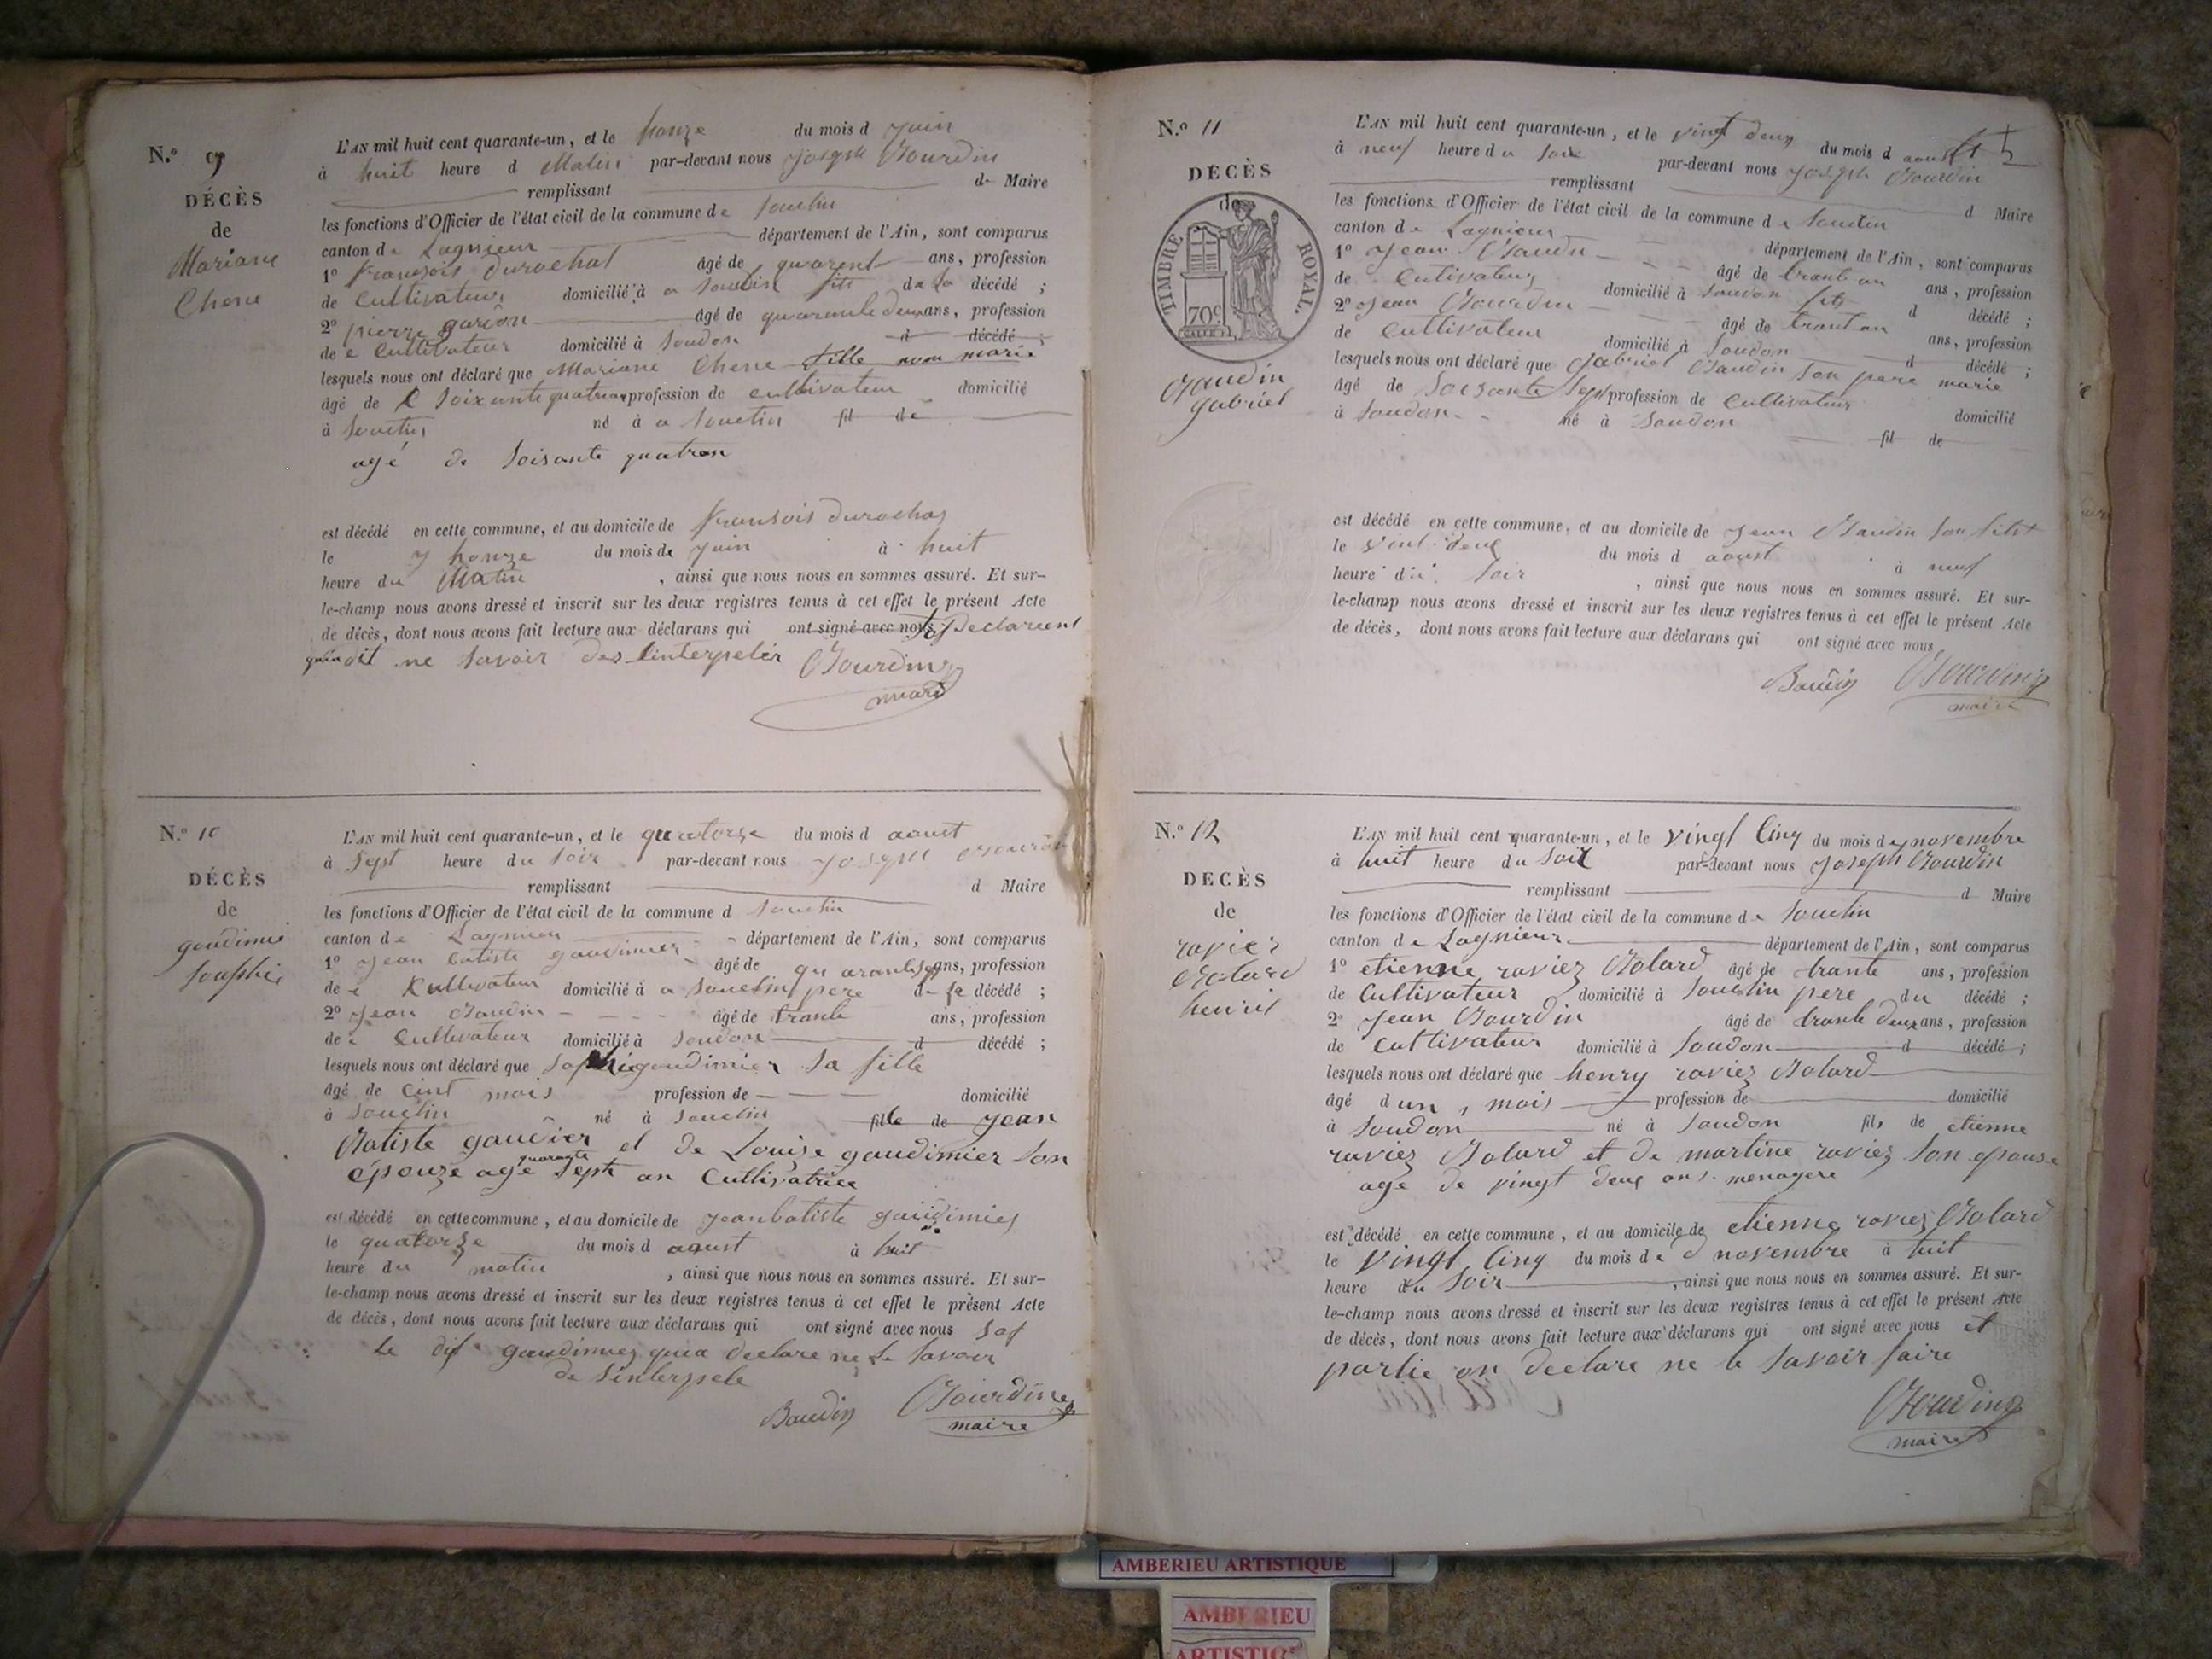 N.º 9
DÉCÈS
de
Mariane
Chene
L'AN mil huit cent quarante-un, et le honze du mois d juin
à huit heure d Matin par-devant nous joseph Bourdin
remplissant de Maire
les fonctions d'Officier de l'état civil de la commune de Souclin
canton de Lagnieu département de l'Ain, sont comparus
1º fransois durochat âgé de quarent ans, profession
de Cultivateur domicilié à a Souclin fits de la décédé ;
2º pierre garçon âgé de quarante deux ans, profession
de e Cultivateur domicilié à Soudon d décédé ;
lesquels nous ont déclaré que Mariane Chene fille non marie
âgé de Soixante quatran profession de cultivateur domicilié
à Souclin né à a Souclin fil de
agé de Soisante quatran
est décédé en cette commune, et au domicile de fransois durochas
le honze du mois de juin à huit
heure du Matin , ainsi que nous nous en sommes assuré. Et sur-
le-champ nous avons dressé et inscrit sur les deux registres tenus à cet effet le présent Acte
de décès, dont nous avons fait lecture aux déclarans qui ont signé avec nous, Declarient
dit ne Savoir des linterpeler Bourdin
maire
N.º 10
DÉCÈS
de
goudimié
Souphie
L'AN mil huit cent quarante-un, et le quatorze du mois d aoust
à Sept heure du Soir par-devant nous joseph Bourdin
remplissant d Maire
les fonctions d'Officier de l'état civil de la commune d Souclin
canton de Lagnieu département de l'Ain, sont comparus
1º jean batiste goudimier âgé de quarante ans, profession
de e Kultivateur domicilié à a Souclin pere de décédé ;
2º jean Baudin âgé de trante ans, profession
de e Cultivateur domicilié à Soudon d décédé ;
lesquels nous ont déclaré que Sophie goudimier Sa fille
âgé de Cint mois profession de domicilié
à Souclin né à Souclin fille de jean
Batiste gaudier et de Louise goudimier Son
épouze age quarante Sept an Cultivatrice
est décédé en cette commune, et au domicile de jeanbatiste goudimier
le quatorze du mois d aoust à huit
heure du matin , ainsi que nous nous en sommes assuré. Et sur-
le-champ nous avons dressé et inscrit sur les deux registres tenus à cet effet le présent Acte
de décès, dont nous avons fait lecture aux déclarans qui ont signé avec nous Sof
Le dit goudimier quia declare ne Le Savoir
de S'interpele
Baudin Bourdin
maire
N.º 11
DÉCÈS
de
TIMBRE ROYAL.
70c
Baudin
gabriel
L'AN mil huit cent quarante-un, et le vingt deux du mois d aoust
à neuf heure du Soir par-devant nous joseph Bourdin
remplissant d Maire
les fonctions d'Officier de l'état civil de la commune de Souclin
canton de Lagnieu département de l'Ain, sont comparus
1º jean Baudin âgé de trante an ans, profession
de Cultivateur domicilié à Soudon fits d décédé ;
2º jean Bourdin âgé de trant an ans, profession
de Cultivateur domicilié à Soudon d décédé ;
lesquels nous ont déclaré que Gabriel Baudin Son pere marie
âgé de Soisante Sept profession de Cultivateur domicilié
à Soudon né à Soudon fil de
est décédé en cette commune, et au domicile de jean Baudin Son fits
le Vint deux du mois d aoust à neuf
heure du Soir , ainsi que nous nous en sommes assuré. Et sur-
le-champ nous avons dressé et inscrit sur les deux registres tenus à cet effet le présent Acte
de décès, dont nous avons fait lecture aux déclarans qui ont signé avec nous
Baudin Bourdin
maire
N.º 12
DECÈS
de
ravier
Bolard
henri
L'AN mil huit cent quarante-un, et le vingt Cinq du mois de novembre
à huit heure du Soir par-devant nous joseph Bourdin
remplissant d Maire
les fonctions d'Officier de l'état civil de la commune de Souclin
canton de Lagnieu département de l'Ain, sont comparus
1º etienne raviez Bolard âgé de trante ans, profession
de Cultivateur domicilié à Souclin pere du décédé ;
2º jean Bourdin âgé de trante deux ans, profession
de Cultivateur domicilié à Soudon d décédé ;
lesquels nous ont déclaré que henry raviez Bolard
âgé d un, mois profession de domicilié
à Soudon né à Soudon fils de etienne
raviez Bolard et de martine raviez Son epouse
age de vingt deux ans menagere
est décédé en cette commune, et au domicile de etienne raviez Bolard
le vingt Cinq du mois de novembre à huit
heure du Soir , ainsi que nous nous en sommes assuré. Et sur-
le-champ nous avons dressé et inscrit sur les deux registres tenus à cet effet le présent Acte
de décès, dont nous avons fait lecture aux déclarans qui ont signé avec nous et
partie on Declare ne le Savoir faire
Bourdin
maire
AMBERIEU ARTISTIQUE
AMBERIEU
ARTISTIQ